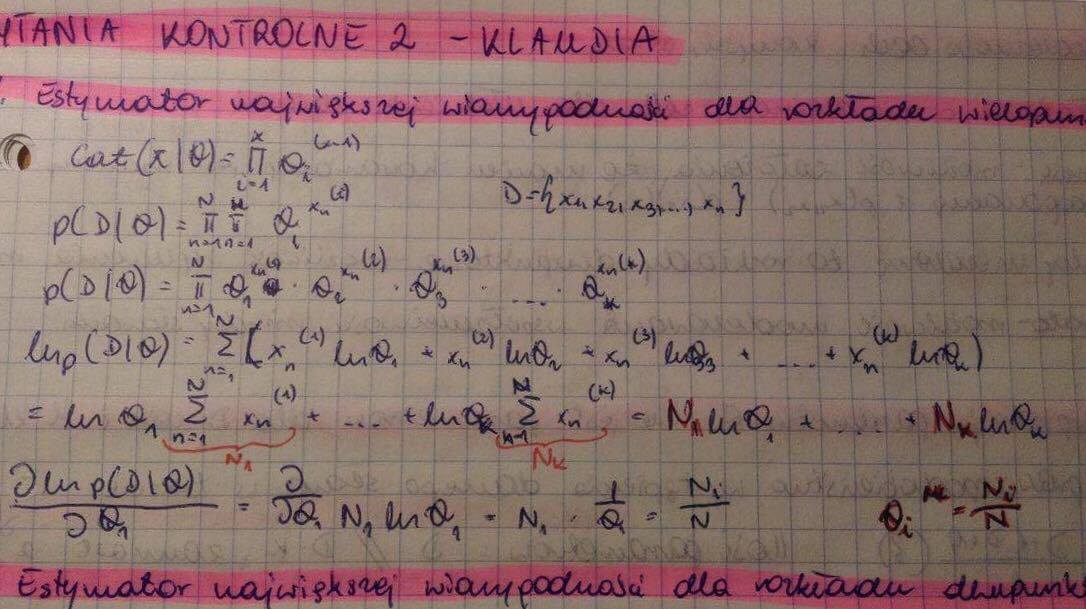 YTANIA KONTROLNE 2 - KLAUDIA
. Estymator największej wiarypodności dla rozkładu wielopun
Cat(x|θ) = ∏_{i=1}^{x} θ_i^{(x-1)}
p(D|θ) = ∏_{n=1}^{N} ∏_{n=1}^{k} θ_i^{x_n^{(i)}} D={x_1, x_2, x_3, ..., x_n}
p(D|θ) = ∏_{n=1}^{N} θ_1^{x_n^{(1)}} · θ_2^{x_n^{(2)}} · θ_3^{x_n^{(3)}} · .... · θ_k^{x_n^{(k)}}
ln p(D|θ) = ∑_{n=1}^{N} [x_n^{(1)} lnθ_1 + x_n^{(2)} lnθ_2 + x_n^{(3)} lnθ_3 + ... + x_n^{(k)} lnθ_k)
= lnθ_1 ∑_{n=1}^{N} x_n^{(1)} + ... + lnθ_k ∑_{n=1}^{N} x_n^{(k)} = N_1 lnθ_1 + ... + N_k lnθ_k
N_1 N_k
∂ ln p(D|θ) / ∂θ_1 = ∂/∂θ_1 N_1 lnθ_1 = N_1 · 1/θ_1 = N_i/N θ_i^{ML} = N_i/N
Estymator największej wiarypodności dla rozkładu dwupunk